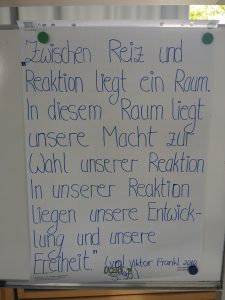 „Zwischen Reiz und
Reaktion liegt ein Raum.
In diesem Raum liegt
unsere Macht zur
Wahl unserer Reaktion
In unserer Reaktion
liegen unsere Entwick-
lung und unsere
Freiheit." (vgl. Viktor Frankl